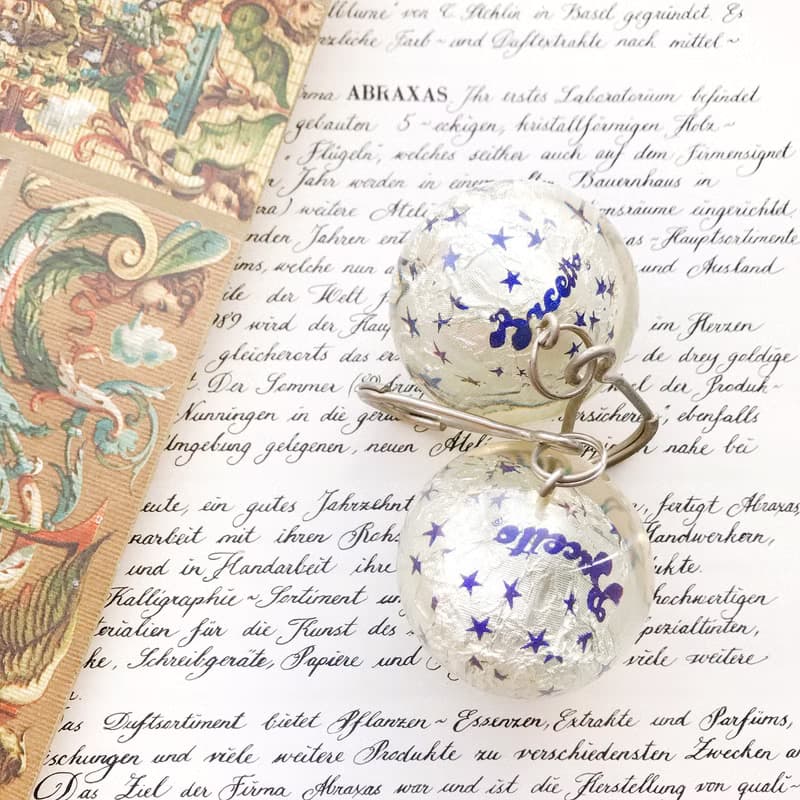 Blume" von C. Stehlin in Basel gegründet. Es
rzliche Farb- und Duftextrakte nach mittel~
irma ABRAXAS Ihr erstes Laboratorium befindet
gebauten 5-eckigen, kristallförmigen Holz~
„Flügeln", welches seither auch auf dem Firmensignet
Jahr werden in einem Bauernhaus in
ra) weitere Ateli onsräume eingerichtet.
nden Jahren ent as-Hauptsortimente
ms, welche nun a und Ausland
ile der Welt
989 wird der Hau im Herzen
gleicherorts das ers de drey goldige
Der Sommer el der Produk~
Nunningen in die ger ersicherey", ebenfalls
mgebung gelegenen, neuen Ateli nahe bei
eute, ein gutes Jahrzehnt fertigt Abraxas
narbeit mit ihren Rohs andwerkern,
und in Handarbeit ihre kte.
Kalligraphie~Sortiment un hochwertigen
terialien für die Kunst des pezialtinten,
ke, Schreibgeräte, Papiere und viele weitere
n.
as Duftsortiment bietet Pflanzen~Essenzen, Extrakte und Parfüms,
schungen und viele weitere Produkte zu verschiedensten Zwecken a
Das Ziel der Firma Abraxas war und ist die Herstellung von quali~
Bacetto
Bacetto